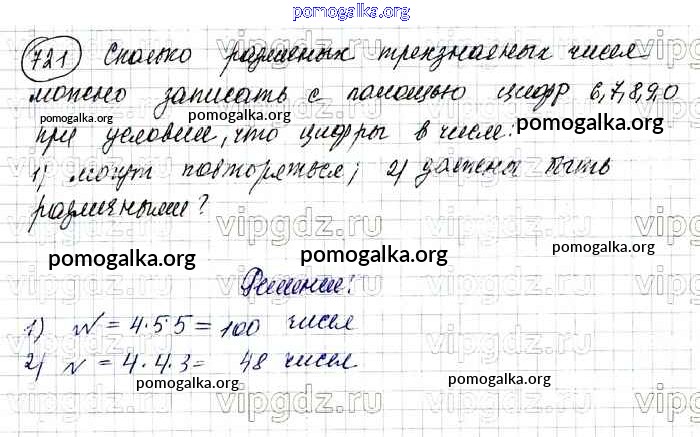 pomogalka.org
721 Сколько различных трехзначных чисел
можно записать с помощью цифр 6,7,8,9,0
pomogalka.org pomogalka.org pomogalka.org
при условии, что цифры в числе:
1) могут повторяться; 2) должны быть
различными?
vipgdz.ru vipgdz.ru
pomogalka.org pomogalka.org pomogalka.org
Решение:
1) N = 4·5·5 = 100 чисел
vipgdz.ru vipgdz.ru
2) N = 4·4·3 = 48 чисел
pomogalka.org pomogalka.org
vipgdz.ru vipgdz.ru